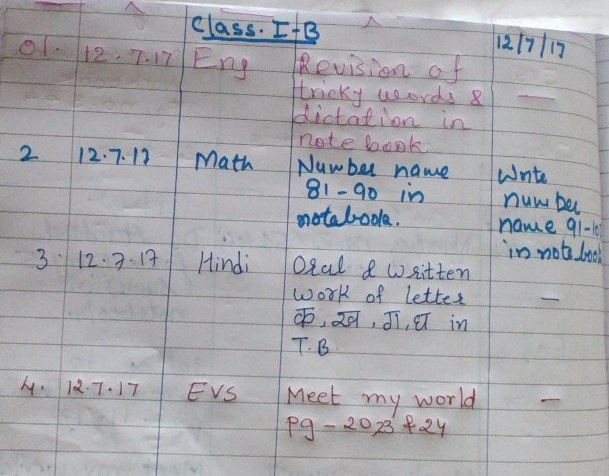 Class. I-B
12/7/17
01. 12.7.17 Eng Revision of
tricky words & —
dictation in
note book
2 12.7.17 Math Number name Write
81-90 in number
notebook. name 91-10
in notebook
3. 12.7.17 Hindi Oral & written
work of letter —
क, ख, ग, घ in
T.B.
4. 12.7.17 EVS Meet my world —
pg - 20,23 & 24